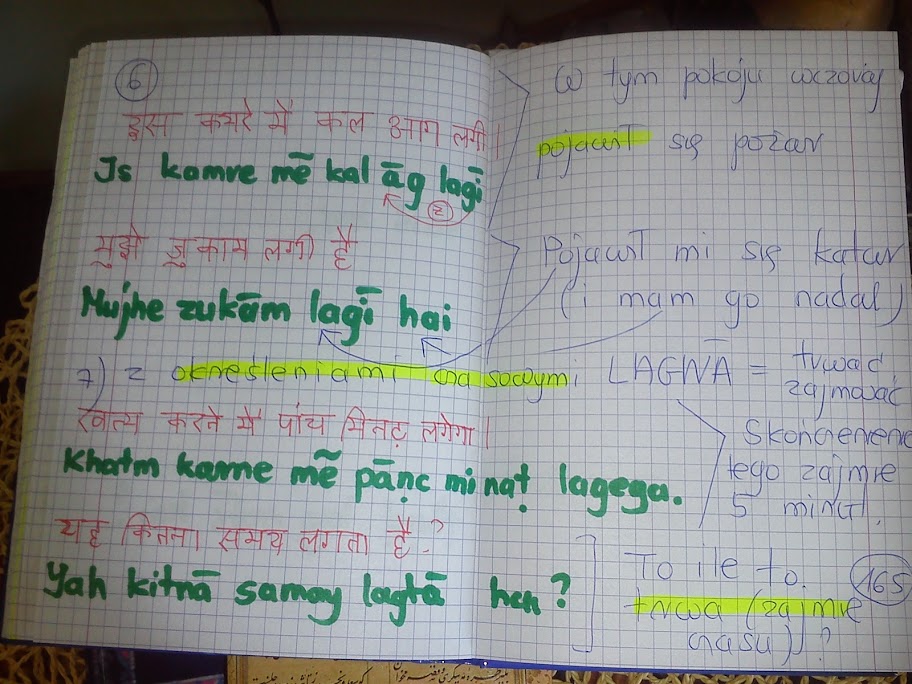 6
इस कमरे में कल आग लगी।
Is kamre mẽ kal āg lagī
2
W tym pokoju wczoraj
pojawił się pożar
मुझे जुकाम लगी है
Mujhe zukām lagī hai
Pojawił mi się katar
(i mam go nadal)
7) z określeniami czasowymi LAGNĀ = trwać
zajmować
खत्म करने में पांच मिनट लगेगा।
Khatm karne mẽ pāṇc minaṭ lagega.
Skończenie
tego zajmie
5 minut.
यह कितना समय लगता है?
Yah kitnā samay lagtā hen?
To ile to
trwa (zajmie
czasu)?
165